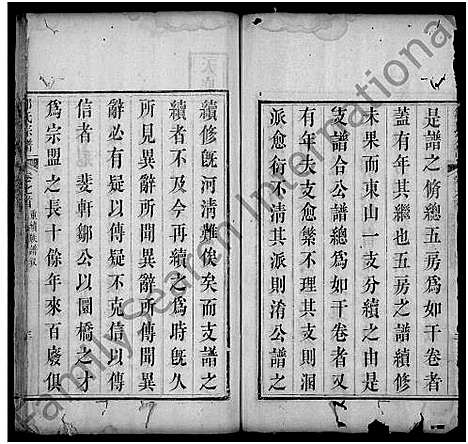 是譜之脩總五房為如干卷者
蓋有年其繼也五房之譜續修
未果而東山一支分續之由是
支譜合公譜總為如干卷者又
有年夫支愈繁不理其支則溷
派愈衍不清其派則淆公譜之
續修既河清難俟矣而支譜之
續者不及今再續之為時既久
所見異辭所聞異辭所傳聞異
辭必有疑以傳疑不克信以傳
信者 斐軒鄒公以園橋之才
為宗盟之長十餘年來百廢俱
氏宗譜 卷之首 重續族譜敘 三
FamilySearch International